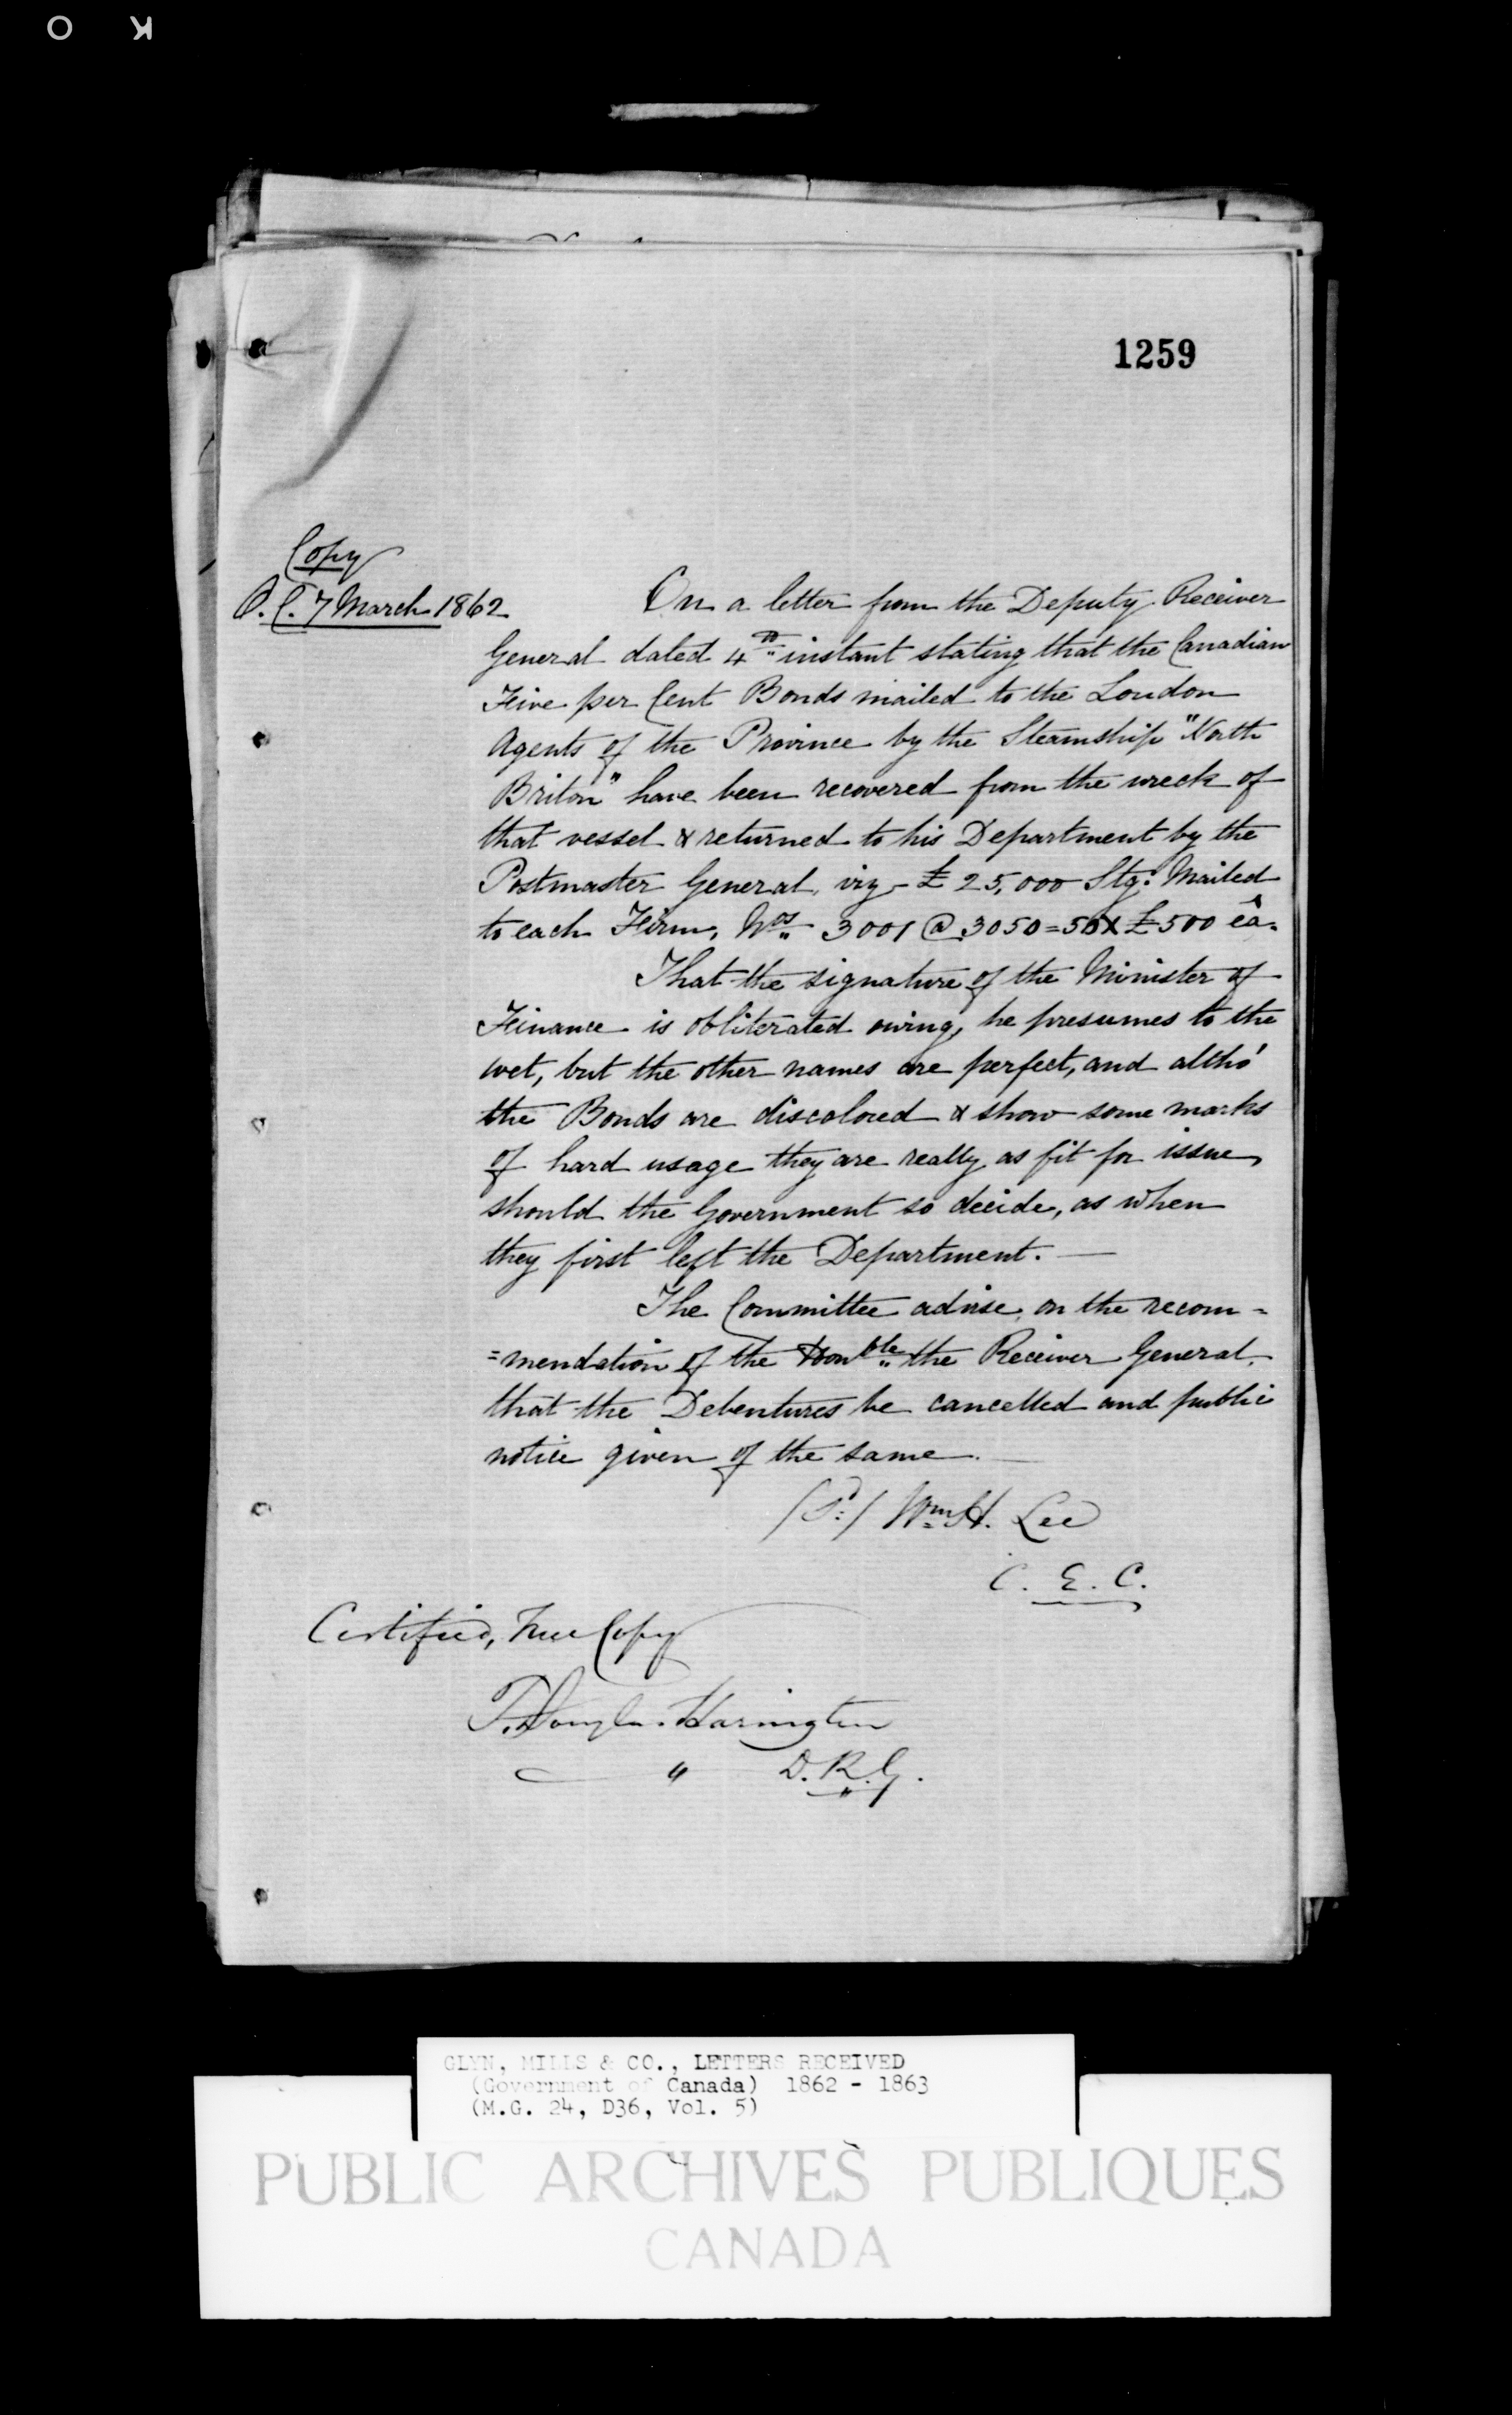 1259
Copy
O. C. 7 March 1862
On a letter from the Deputy Receiver
General dated 4th instant stating that the Canadian
Five per Cent Bonds mailed to the London
Agents of the Province by the Steamship "North
Briton" have been recovered from the wreck of
that vessel & returned to his Department by the
Postmaster General, viz - £25,000 Stg: Mailed
to each Firm, Nos 3001 @ 3050 = 50 X £500 ea.
That the signature of the Minister of
Finance is obliterated owing, he presumes to the
wet, but the other names are perfect, and altho'
the Bonds are discolored & show some marks
of hard usage they are really as fit for issue,
should the Government so decide, as when
they first left the Department. —
The Committee advise, on the recom=
=mendation of the Honble the Receiver General,
that the Debentures be cancelled and public
notice given of the same. —
(Sd:) Wm H. Lee
C. E. C.
Certified, True Copy
T. Douglas Harington
" D. R. G.
GLYN, MILLS & CO., LETTERS RECEIVED
(Government of Canada) 1862 - 1863
(M.G. 24, D36, Vol. 5)
PUBLIC ARCHIVES PUBLIQUES
CANADA